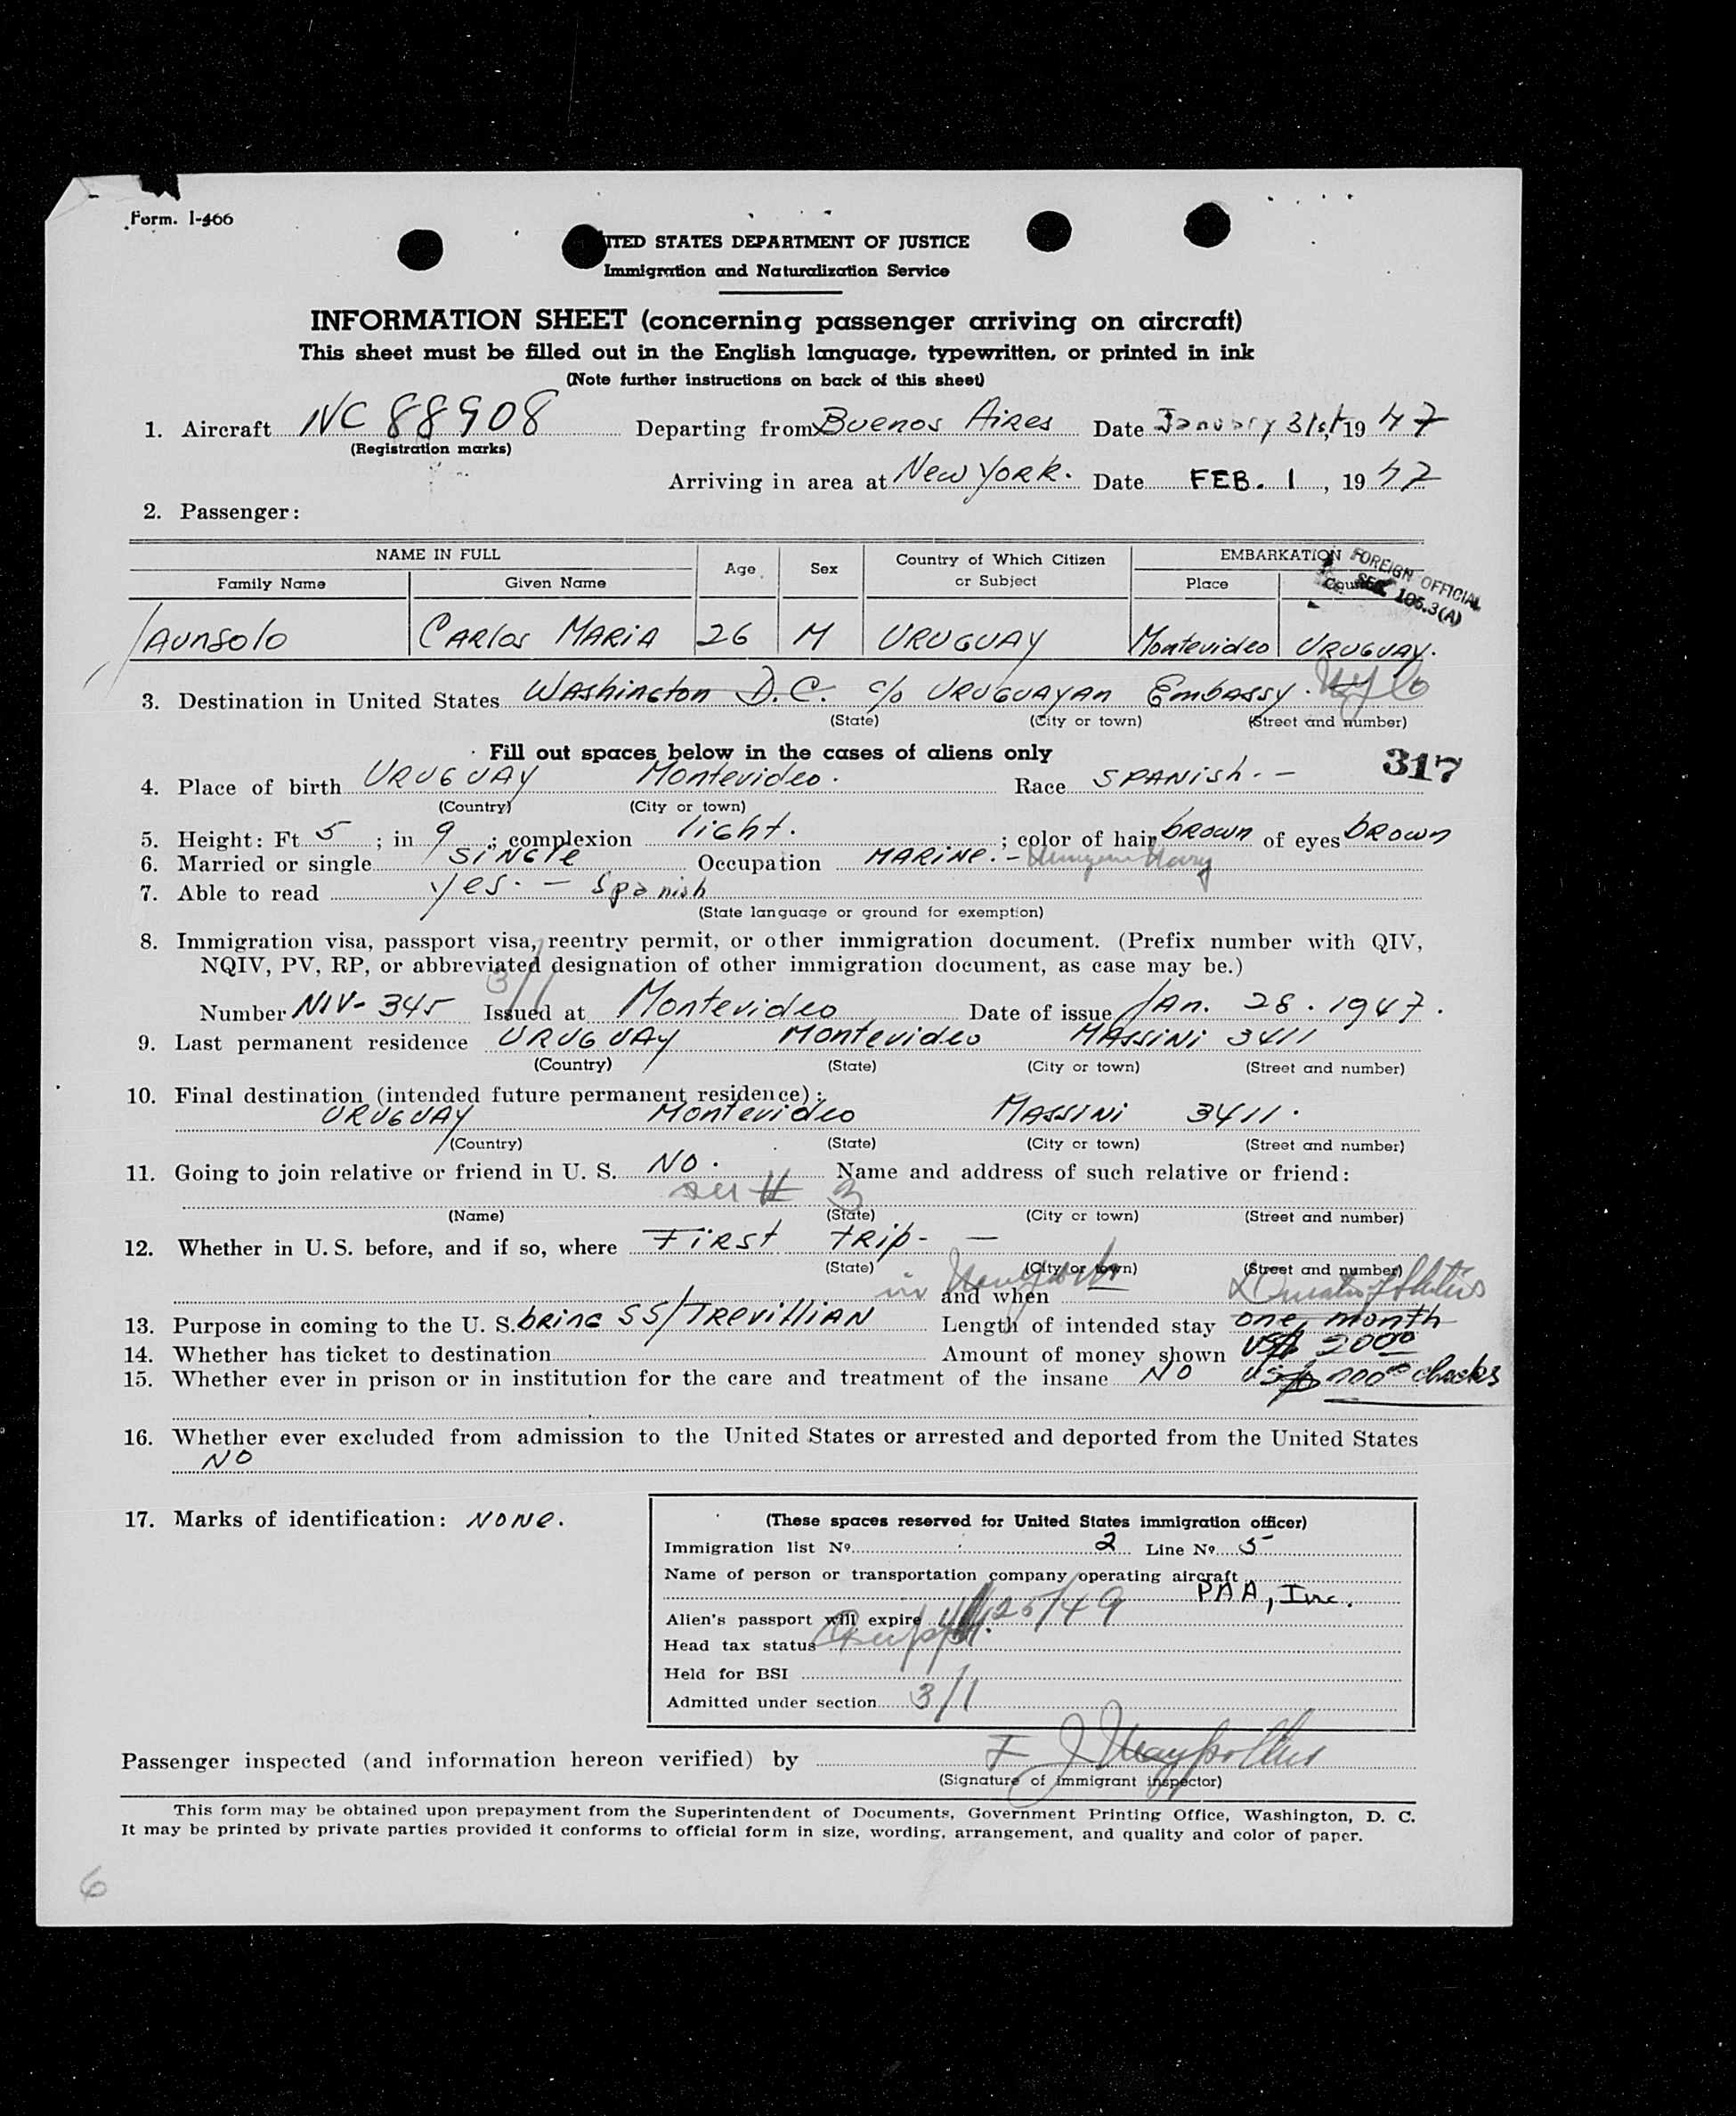 Form. I-466
ITED STATES DEPARTMENT OF JUSTICE
Immigration and Naturalization Service
INFORMATION SHEET (concerning passenger arriving on aircraft)
This sheet must be filled out in the English language, typewritten, or printed in ink
(Note further instructions on back of this sheet)
1. Aircraft NC 88908 Departing from Buenos Aires Date January 31st, 19 47
(Registration marks)
Arriving in area at New York. Date FEB. 1, 19 47
2. Passenger:
NAME IN FULL Age Sex Country of Which Citizen or Subject EMBARKATION
Family Name Given Name Place
FOREIGN OFFICIAL
SEC. 105.3(A)
Aunsolo Carlos Maria 26 M Uruguay Montevideo Uruguay.
3. Destination in United States Washington D.C. c/o Uruguayan Embassy.
(State) (City or town) (Street and number)
Fill out spaces below in the cases of aliens only
317
4. Place of birth Uruguay Montevideo. Race Spanish. -
(Country) (City or town)
5. Height: Ft 5 ; in 9 ; complexion light. ; color of hair brown of eyes brown
6. Married or single Single Occupation Marine. -
7. Able to read yes. - Spanish
(State language or ground for exemption)
8. Immigration visa, passport visa, reentry permit, or other immigration document. (Prefix number with QIV,
NQIV, PV, RP, or abbreviated designation of other immigration document, as case may be.)
3/1
Number NIV-345 Issued at Montevideo Date of issue Jan. 28. 1947.
9. Last permanent residence Uruguay Montevideo Massini 3411
(Country) (State) (City or town) (Street and number)
10. Final destination (intended future permanent residence):
Uruguay Montevideo Massini 3411.
(Country) (State) (City or town) (Street and number)
11. Going to join relative or friend in U. S. No. Name and address of such relative or friend:
# 3
(Name) (State) (City or town) (Street and number)
12. Whether in U. S. before, and if so, where First trip- -
(State) (City or town) (Street and number)
in New York and when
13. Purpose in coming to the U. S. bring SS/Trevillian Length of intended stay one month
14. Whether has ticket to destination Amount of money shown
15. Whether ever in prison or in institution for the care and treatment of the insane No checks
16. Whether ever excluded from admission to the United States or arrested and deported from the United States
No
17. Marks of identification: None.
(These spaces reserved for United States immigration officer)
Immigration list No 2 Line No 5
Name of person or transportation company operating aircraft
PAA, Inc.
Alien's passport will expire 26/49
Head tax status
Held for BSI
Admitted under section 3/1
Passenger inspected (and information hereon verified) by
(Signature of immigrant inspector)
This form may be obtained upon prepayment from the Superintendent of Documents, Government Printing Office, Washington, D. C.
It may be printed by private parties provided it conforms to official form in size, wording, arrangement, and quality and color of paper.
6